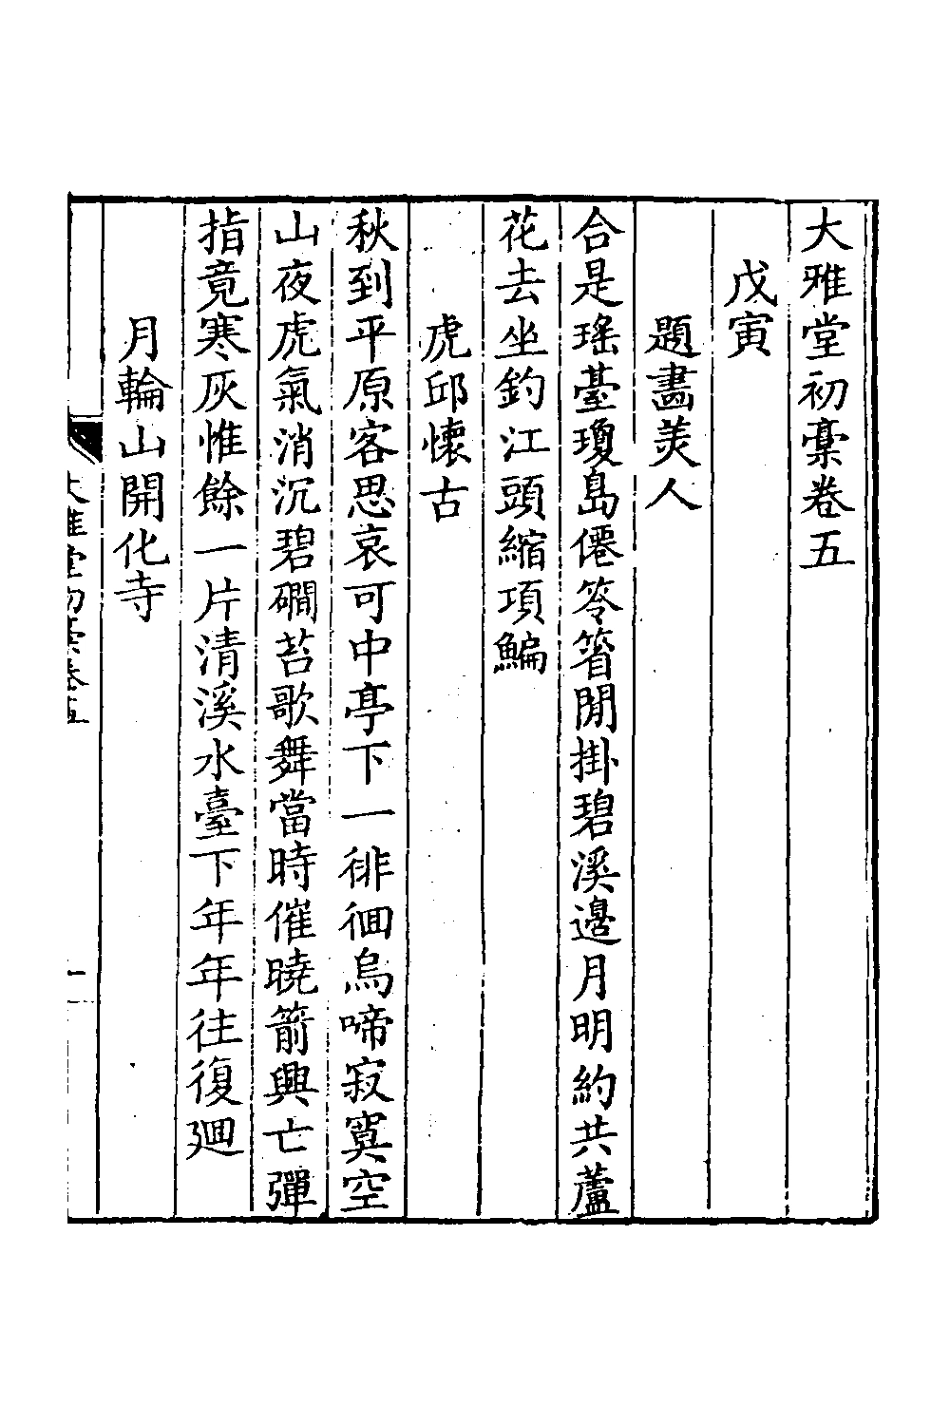 大雅堂初稾卷五
戊寅
題畵美人
合是瑤臺瓊島僊笭箵閒掛碧溪邊月明約共蘆
花去坐釣江頭縮項鯿
虎邱懷古
秋到平原客思哀可中亭下一徘徊烏啼寂寞空
山夜虎氣消沉碧磵苔歌舞當時催曉箭興亡彈
指竟寒灰惟餘一片清溪水臺下年年往復迴
月輪山開化寺
大雅堂初稾卷五
一